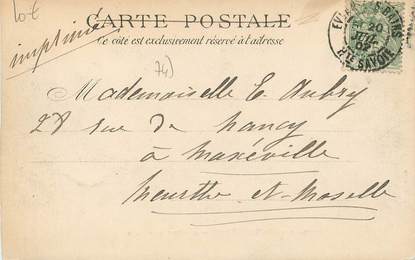 CARTE POSTALE
Ce côté est exclusivement réservé à l'adresse
imprimé
74)
EVIAN-LES-BAINS
20
HTE SAVOIE
Mademoiselle E. Aubry
28 rue de Nancy
à Maxéville
Meurthe-et-Moselle